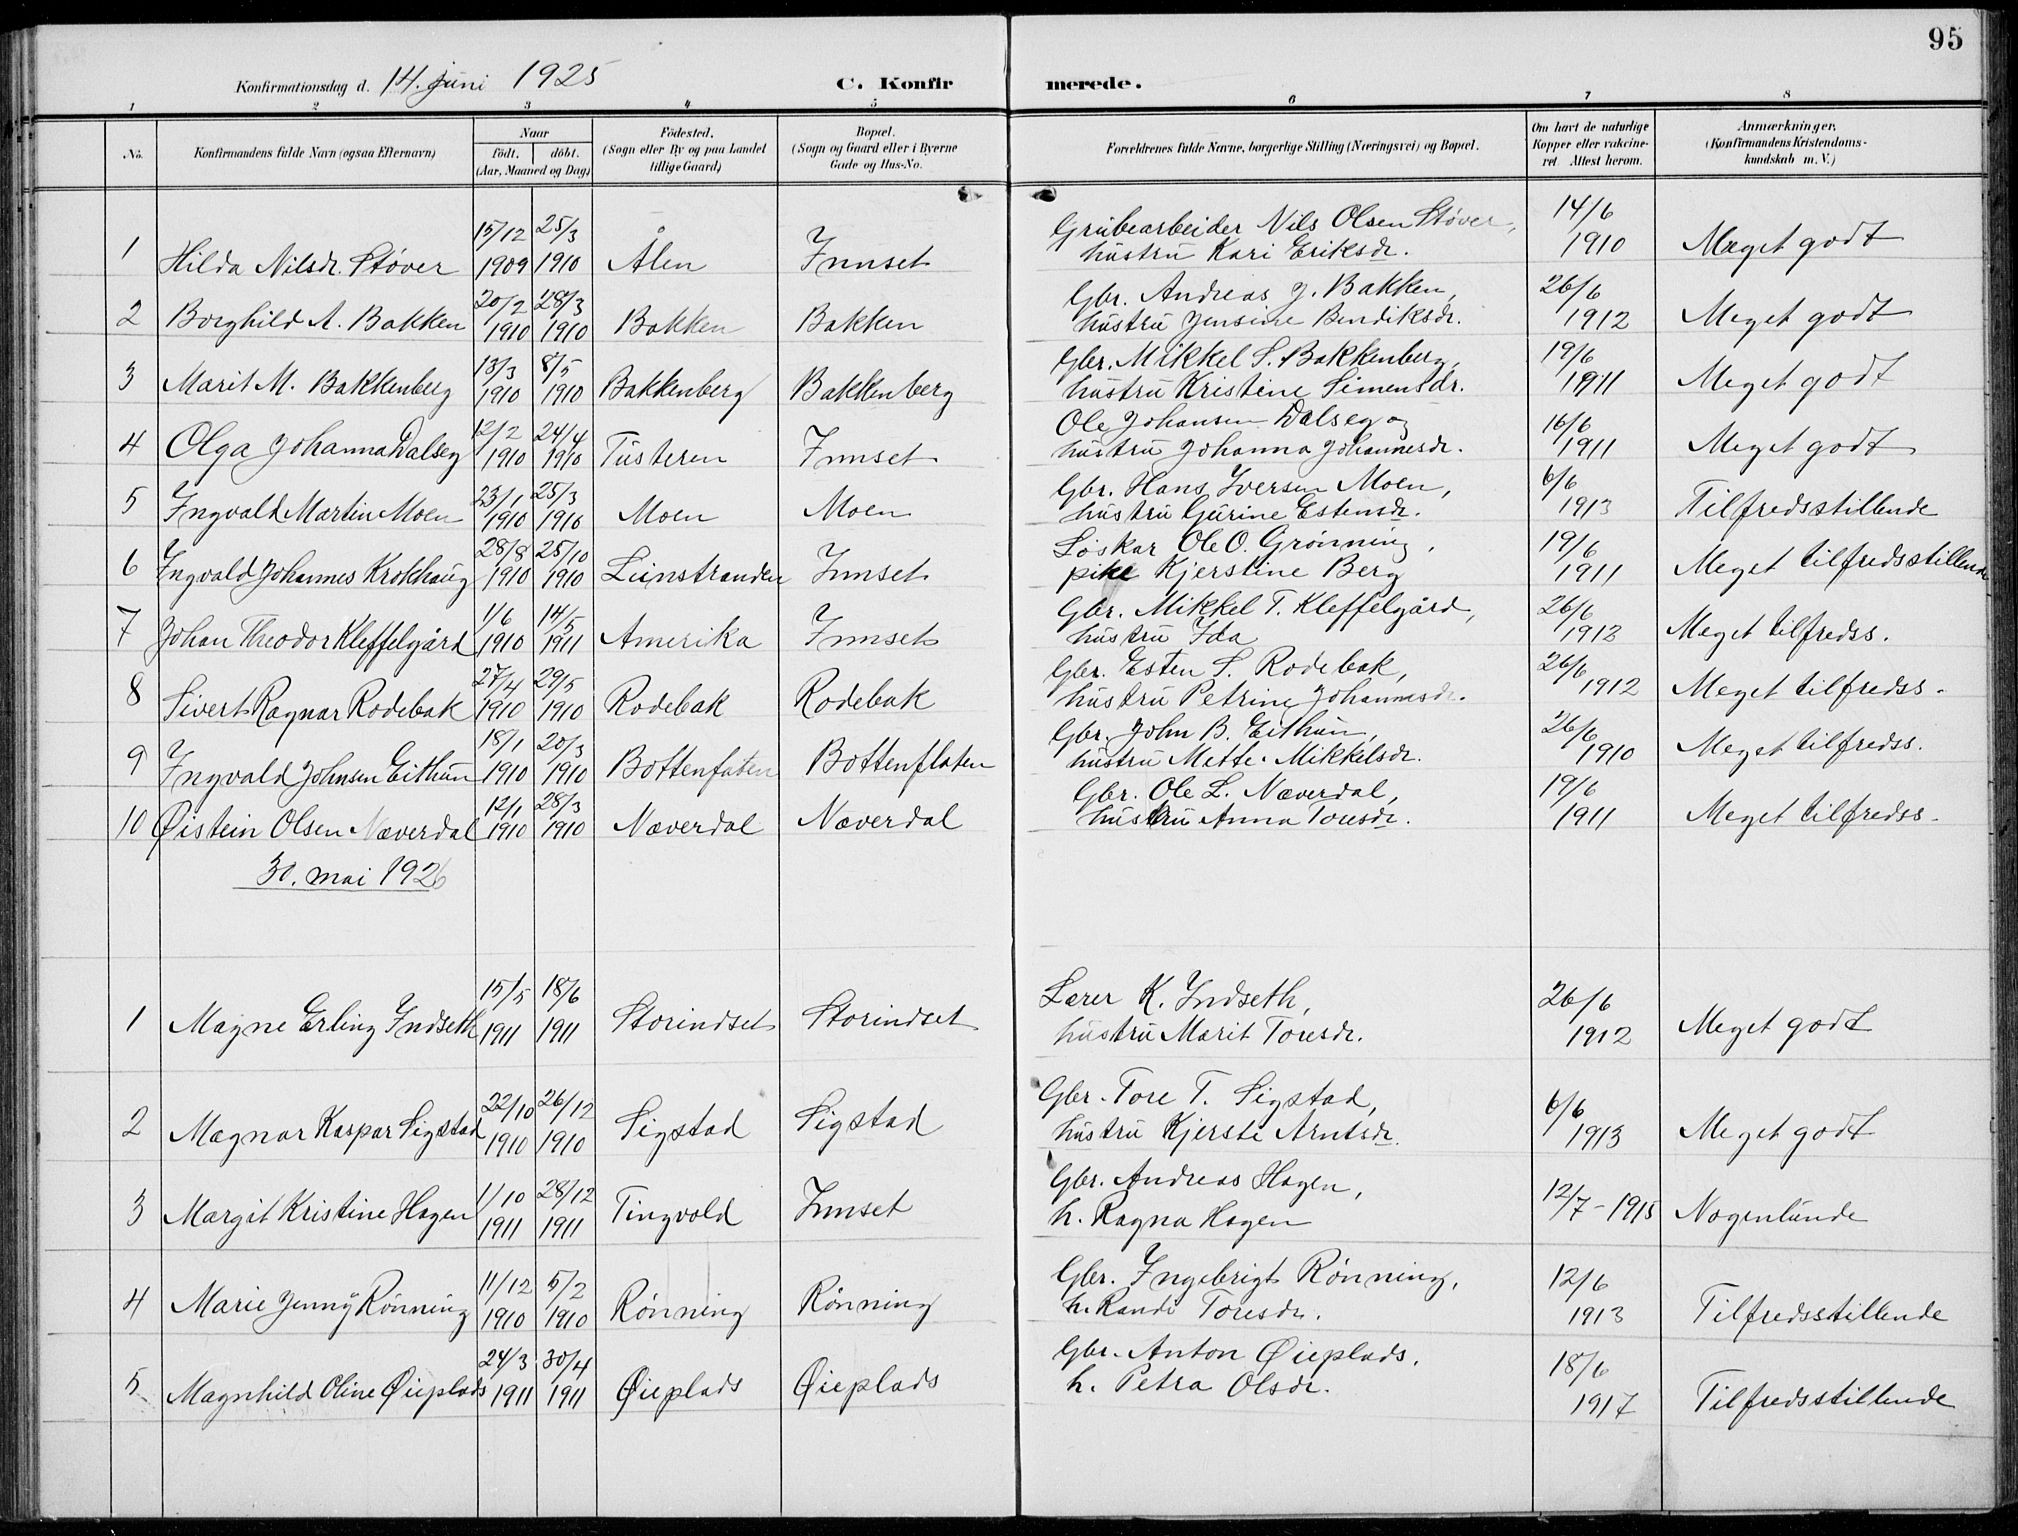 95
Konfirmationsdag d. 14. juni 1925 C. Konfir merede.
1 2 3 4 5 6 7 8
No. Konfirmandens fulde Navn (ogsaa Efternavn) Naar födt. döbt. (Aar, Maaned og Dag) Födested. (Sogn eller By og paa Landet tillige Gaard) Bopæl. (Sogn og Gaard eller i Byerne Gade og Hus-No. Forældrenes fulde Navne, borgerlige Stilling (Næringsvei) og Bopæl. Om havt de naturlige Kopper eller vakcineret Attest herom. Anmærkninger. (Konfirmandens Kristendomskundskab m. V.)
15/12 25/3 Grubearbeider Nils Olsen Støver, 14/6
1 Hilda Nilsdr. Støver 1909 1910 Ålen Innset hustru Kari Eriksdr. 1910 Meget godt
20/2 28/3 Gbr. Andreas J. Bakken, 26/6
2 Borghild A. Bakken 1910 1910 Bakken Bakken hustru Jensine Bendiksdr. 1912 Meget godt
13/3 8/5 Gbr. Mikkel S. Bakkenberg, 19/6
3 Marit M. Bakkenberg 1910 1910 Bakkenberg Bakkenberg hustru Kristine Simensdr. 1911 Meget godt
12/2 24/4 Ole Johansen Dalseg og 16/6
4 Olga Johanna Dalseg 1910 1910 Tusteren Innset hustru Johanna Johannesdr. 1911 Meget godt
23/1 25/3 Gbr. Hans Iversen Moen, 6/6
5 Ingvald Martin Moen 1910 1910 Moen Moen hustru Gurine Estensdr. 1913 Tilfredsstillende
28/8 25/10 Løskar Ole O. Grønning, 19/6
6 Ingvald Johannes Krokhaug 1910 1910 Leinstranden Innset pike Kjerstine Berg 1911 Meget tilfredsstillende
1/6 14/5 Gbr. Mikkel T. Kleffelgård, 26/6
7 Johan Theodor Kleffelgård 1910 1911 Amerika Innset hustru Ida 1912 Meget tilfredss.
27/4 29/5 Gbr. Esten S. Rodebak, 26/6
8 Sivert Ragnar Rodebak 1910 1910 Rodebak Rodebak hustru Petrine Johannesdr. 1912 Meget tilfredss.
18/1 20/3 Gbr. John B. Eithun, 26/6
9 Ingvald Johnsen Eithun 1910 1910 Bottenflaten Bottenflaten hustru Mette Mikkelsdr. 1910 Meget tilfredss.
12/1 28/3 Gbr. Ole L. Næverdal, 19/6
10 Øistein Olsen Næverdal 1910 1910 Næverdal Næverdal hustru Anna Toresdr. 1911 Meget tilfredss.
30. mai 1926
15/5 18/6 Lærer K. Indseth, 26/6
1 Magne Erling Indseth 1911 1911 Storindset Storindset hustru Marit Toresdr. 1912 Meget godt
22/10 26/12 Gbr. Tore T. Sigstad, 6/6
2 Magnar Kaspar Sigstad 1910 1910 Sigstad Sigstad hustru Kjersti Arntsdr. 1913 Meget godt
1/10 28/12 Gbr. Andreas Hagen,
3 Margit Kristine Hagen 1911 1911 Tingvold Innset h. Ragna Hagen 12/7-1915 Nogenlunde
11/12 5/2 Gbr. Ingebrigt Rønning, 12/6
4 Marie Jenny Rønning 1910 1910 Rønning Rønning h. Randi Toresdr. 1913 Tilfredsstillende
24/3 30/4 Gbr. Anton Øieplads, 18/6
5 Magnhild Oline Øieplads 1911 1911 Øieplads Øieplads h. Petra Olsdr. 1917 Tilfredsstillende